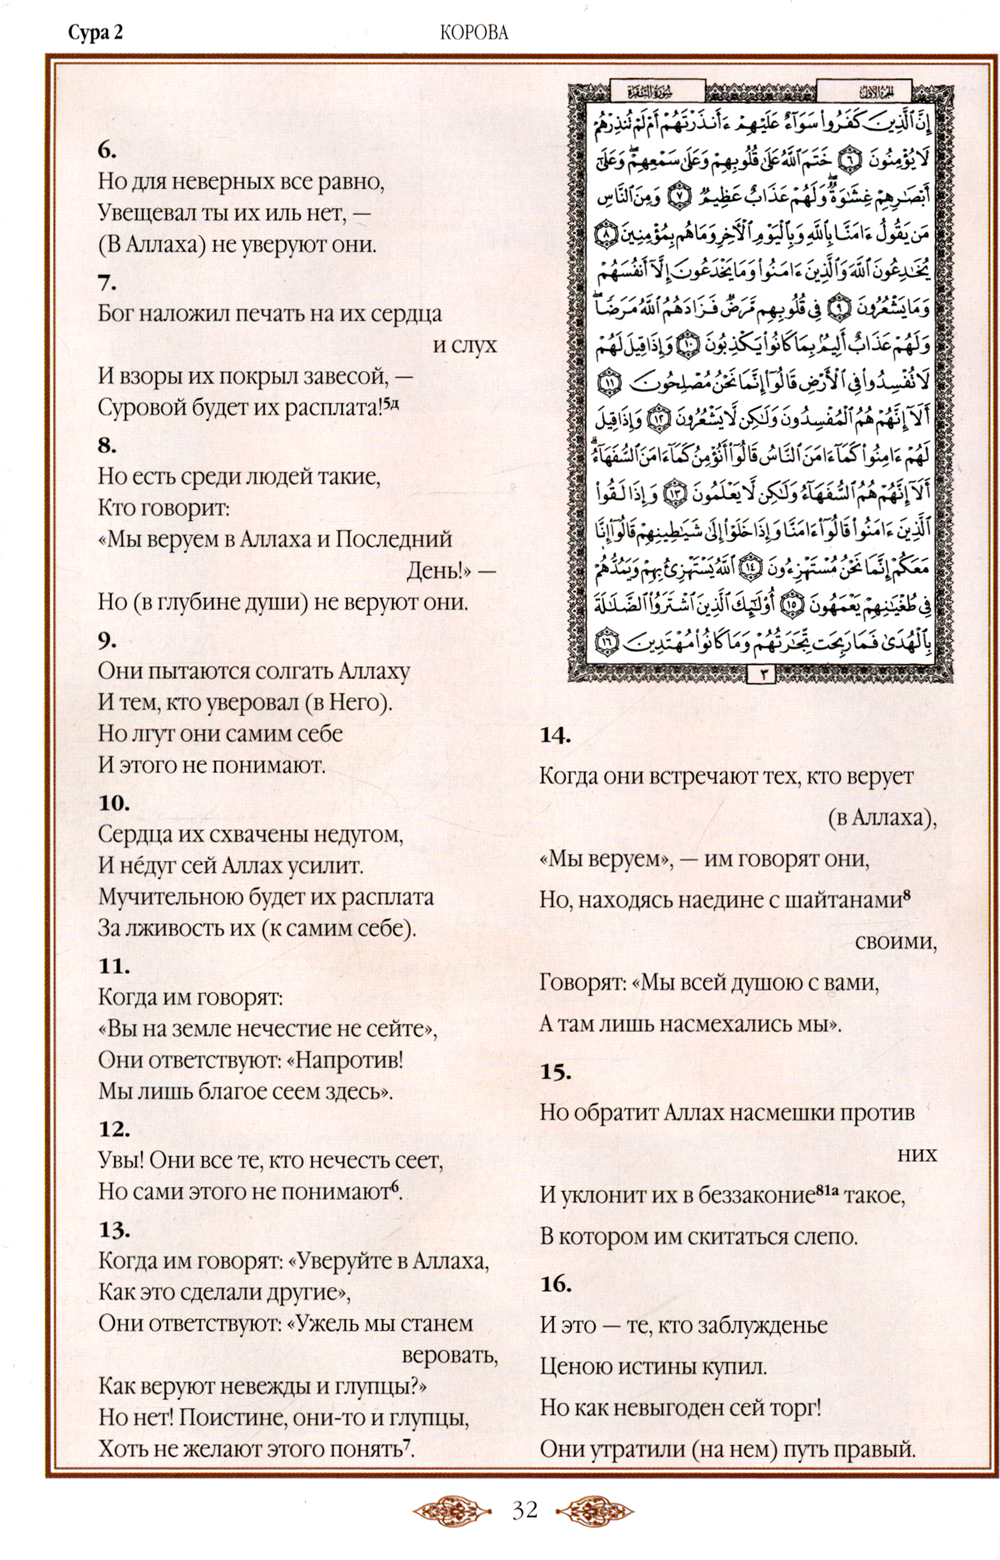 Сура 2
КОРОВА
6.
Но для неверных все равно,
Увещевал ты их иль нет, —
(В Аллаха) не уверуют они.
7.
Бог наложил печать на их сердца
и слух
И взоры их покрыл завесой, —
Суровой будет их расплата!5д
8.
Но есть среди людей такие,
Кто говорит:
«Мы веруем в Аллаха и Последний
День!» —
Но (в глубине души) не веруют они.
9.
Они пытаются солгать Аллаху
И тем, кто уверовал (в Него).
Но лгут они самим себе
И этого не понимают.
10.
Сердца их схвачены недугом,
И не́дуг сей Аллах усилит.
Мучительною будет их расплата
За лживость их (к самим себе).
11.
Когда им говорят:
«Вы на земле нечестие не сейте»,
Они ответствуют: «Напротив!
Мы лишь благое сеем здесь».
12.
Увы! Они все те, кто нечесть сеет,
Но сами этого не понимают6.
13.
Когда им говорят: «Уверуйте в Аллаха,
Как это сделали другие»,
Они ответствуют: «Ужель мы станем
веровать,
Как веруют невежды и глупцы?»
Но нет! Поистине, они-то и глупцы,
Хоть не желают этого понять7.
سورة البقرة
الجزء الأول
إِنَّ ٱلَّذِينَ كَفَرُوا۟ سَوَآءٌ عَلَيْهِمْ ءَأَنذَرْتَهُمْ أَمْ لَمْ تُنذِرْهُمْ
لَا يُؤْمِنُونَ ٦ خَتَمَ ٱللَّهُ عَلَىٰ قُلُوبِهِمْ وَعَلَىٰ سَمْعِهِمْ ۖ وَعَلَىٰٓ
أَبْصَٰرِهِمْ غِشَٰوَةٌ ۖ وَلَهُمْ عَذَابٌ عَظِيمٌ ٧ وَمِنَ ٱلنَّاسِ
مَن يَقُولُ ءَامَنَّا بِٱللَّهِ وَبِٱلْيَوْمِ ٱلْءَاخِرِ وَمَا هُم بِمُؤْمِنِينَ ٨
يُخَٰدِعُونَ ٱللَّهَ وَٱلَّذِينَ ءَامَنُوا۟ وَمَا يَخْدَعُونَ إِلَّآ أَنفُسَهُمْ
وَمَا يَشْعُرُونَ ٩ فِى قُلُوبِهِم مَّرَضٌ فَزَادَهُمُ ٱللَّهُ مَرَضًا ۖ
وَلَهُمْ عَذَابٌ أَلِيمٌۢ بِمَا كَانُوا۟ يَكْذِبُونَ ١٠ وَإِذَا قِيلَ لَهُمْ
لَا تُفْسِدُوا۟ فِى ٱلْأَرْضِ قَالُوٓا۟ إِنَّمَا نَحْنُ مُصْلِحُونَ ١١
أَلَآ إِنَّهُمْ هُمُ ٱلْمُفْسِدُونَ وَلَٰكِن لَّا يَشْعُرُونَ ١٢ وَإِذَا قِيلَ
لَهُمْ ءَامِنُوا۟ كَمَآ ءَامَنَ ٱلنَّاسُ قَالُوٓا۟ أَنُؤْمِنُ كَمَآ ءَامَنَ ٱلسُّفَهَآءُ ۗ
أَلَآ إِنَّهُمْ هُمُ ٱلسُّفَهَآءُ وَلَٰكِن لَّا يَعْلَمُونَ ١٣ وَإِذَا لَقُوا۟
ٱلَّذِينَ ءَامَنُوا۟ قَالُوٓا۟ ءَامَنَّا وَإِذَا خَلَوْا۟ إِلَىٰ شَيَٰطِينِهِمْ قَالُوٓا۟ إِنَّا
مَعَكُمْ إِنَّمَا نَحْنُ مُسْتَهْزِءُونَ ١٤ ٱللَّهُ يَسْتَهْزِئُ بِهِمْ وَيَمُدُّهُمْ
فِى طُغْيَٰنِهِمْ يَعْمَهُونَ ١٥ أُو۟لَٰٓئِكَ ٱلَّذِينَ ٱشْتَرَوُا۟ ٱلضَّلَٰلَةَ
بِٱلْهُدَىٰ فَمَا رَبِحَت تِّجَٰرَتُهُمْ وَمَا كَانُوا۟ مُهْتَدِينَ ١٦
٣
14.
Когда они встречают тех, кто верует
(в Аллаха),
«Мы веруем», — им говорят они,
Но, находясь наедине с шайтанами8
своими,
Говорят: «Мы всей душою с вами,
А там лишь насмехались мы».
15.
Но обратит Аллах насмешки против
них
И уклонит их в беззаконие81а такое,
В котором им скитаться слепо.
16.
И это — те, кто заблужденье
Ценою истины купил.
Но как невыгоден сей торг!
Они утратили (на нем) путь правый.
32